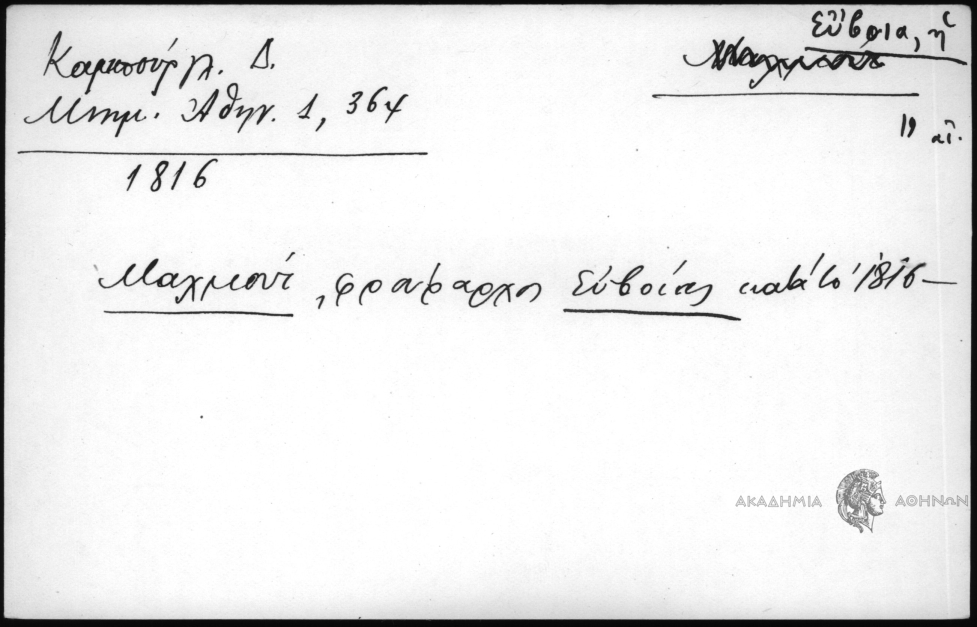 Καμπούργλ. Δ.
Μνημ. Αθην. 1, 364
1816
Εὔβοια, ἡ
Μαχμούτ
19 αἰ.
Μαχμούτ, φρούραρχος Εὐβοίας κατὰ τὸ 1816 —
ΑΚΑΔΗΜΙΑ ΑΘΗΝΩΝ